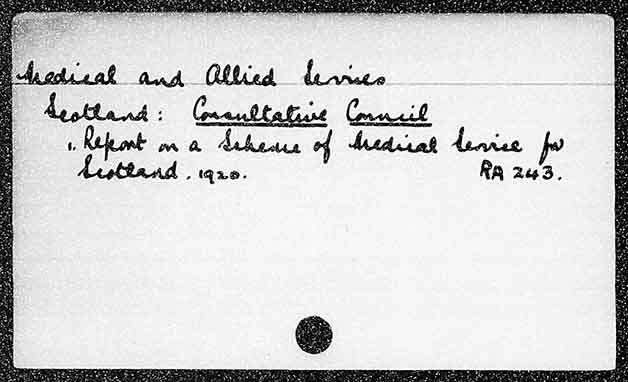 Medical and Allied Services
Scotland: Consultative Council
1. Report on a Scheme of Medical Service for
Scotland. 1920. RA 243.